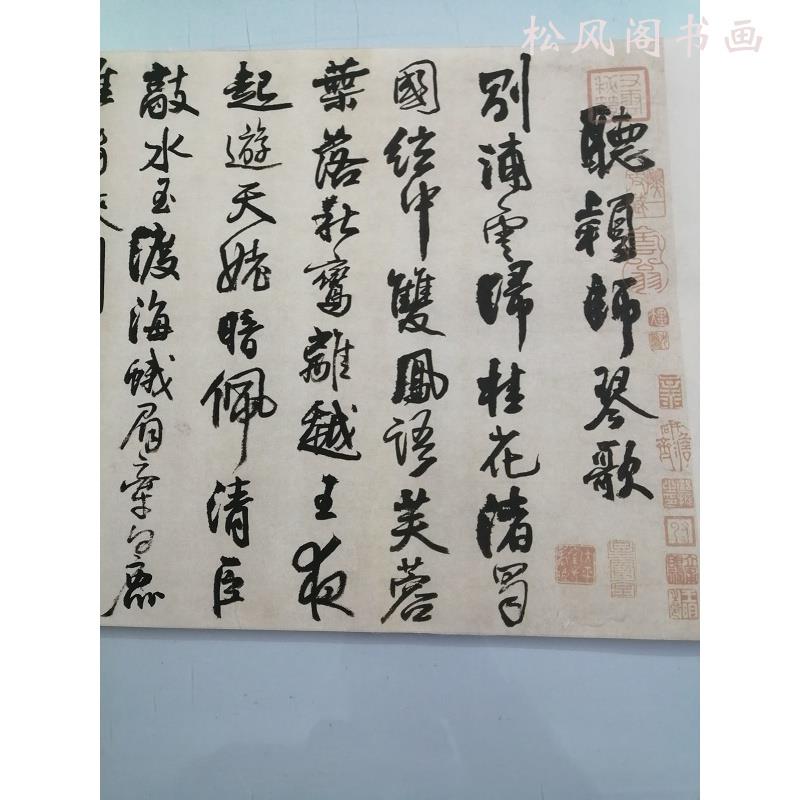 松风阁书画
聽穎師琴歌
別浦雲歸桂花渚蜀
國絃中雙鳳語芙蓉
葉落秋鸞離越王夜
起遊天姥暗佩清臣
敲水玉渡海蛾眉牽白鹿